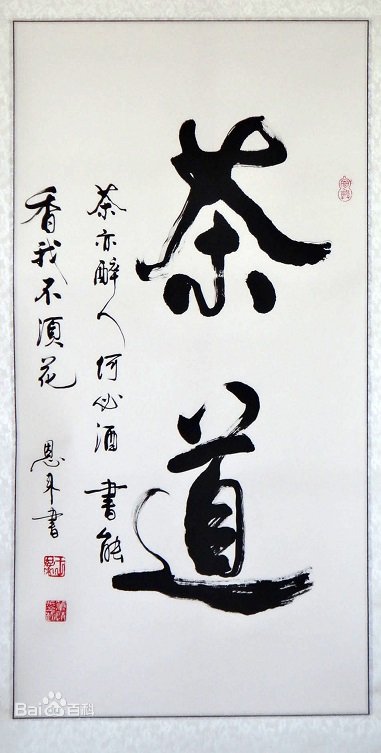 茶道
茶亦醉人何必酒 書能
香我不須花
恩書
Bai du 百科